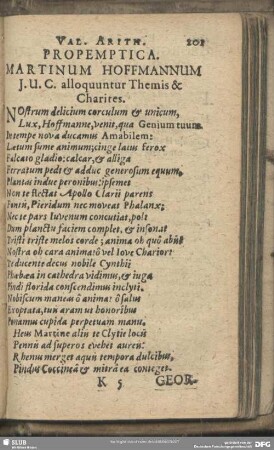 VAL. ARITH. 201
PROPEMPTICA.
MARTINUM HOFFMANNUM
J. U. C. alloquuntur Themis &
Charites.
NOstrum delicium corculum & unicum,
Lux, Hoffmanne, venis, qua Genium tuum
In tempe nova ducamus Amabilem:
Lætum sume animum; cinge latus ferox
Falcato gladio: calcar, & alliga
Ferratum pedi & adduc generosum equum,
Plantas indue peronibus: ipsemet
Non te flectat Apollo Clarii parens
Fontis, Pieridum nec moveat Phalanx;
Nec te pars Iuvenum concutiat, polt
Dum planctu faciem complet, & insonat
Tristi triste melos corde; anima oh quò abis
Nostra oh cara anima! ô vel Iove Chariort
Te ducente decus nobile Cynthij
Phœbea in cathedra vidimus, & juga
Pindi florida conscendimus inclyti.
Nobiscum maneas ô anima: ô salus
Exoptata, tun aram ut honoribus
Ponamus cupida perpetuam manu.
Heus Martine aliis te Clytie locis
Pennis ad superos evehet aureis:
Rhenus merget aquis tempora dulcibus,
Pindus Coccineâ & mitrâ ea conteget.
K 5 GEOR.
SLUB